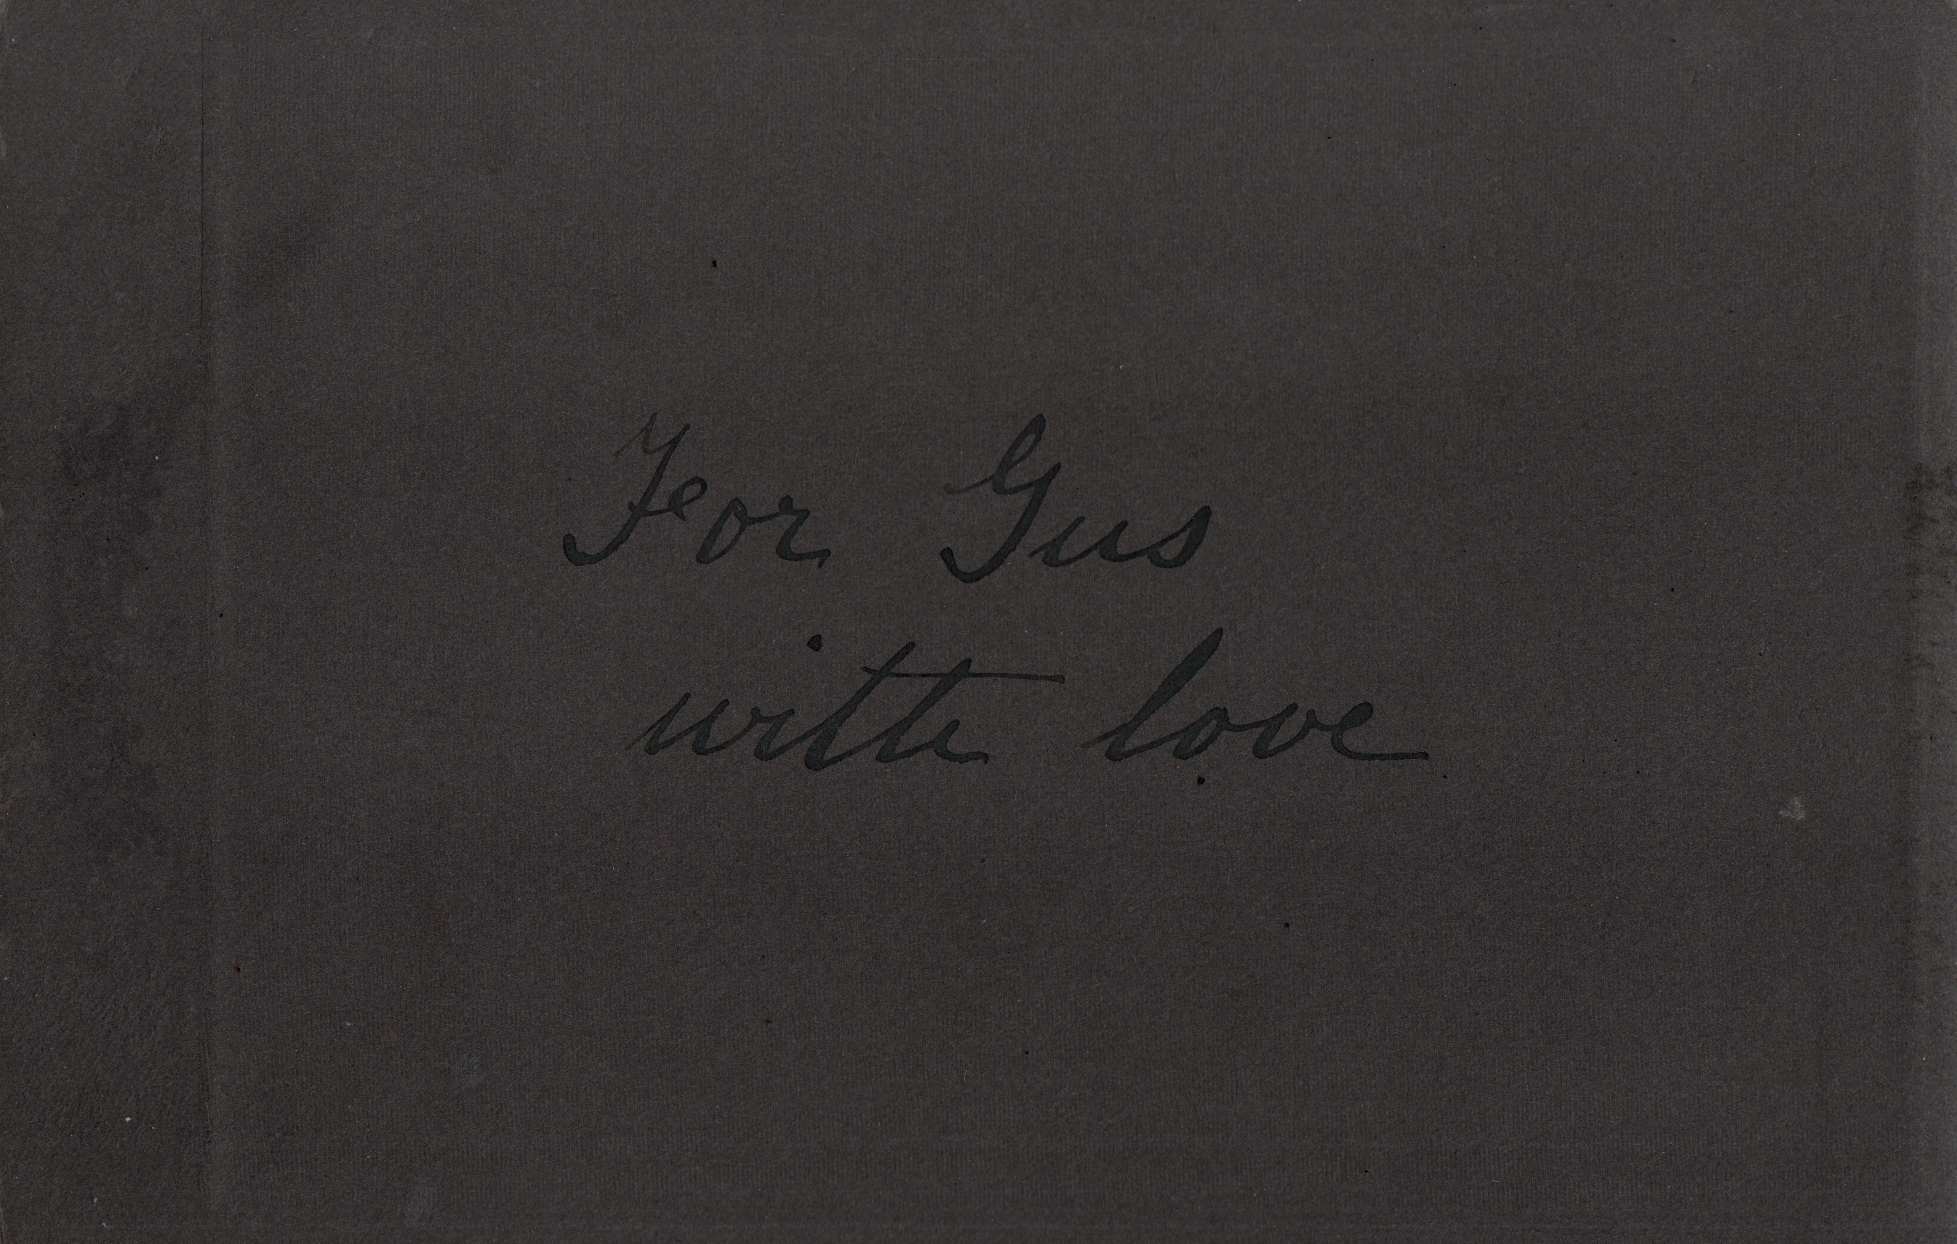 For Gus
with love